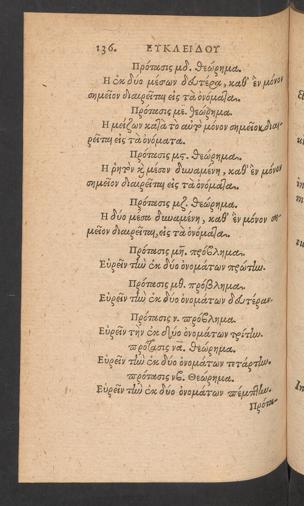 136. ΕΥΚΛΕΙΔΟΥ
Πρότασις μδ. θεώρημα.
Η ἐκ δύο μέσων δευτέρα, καθ' ἓν μόνον
σημεῖον διαιρεῖται εἰς τὰ ὀνόματα.
Πρότασις με. θεώρημα.
Η μείζων κατὰ τὸ αὐτὸ μόνον σημεῖον διαι-
ρεῖται εἰς τὰ ὀνόματα.
Πρότασις μς. θεώρημα.
Η ῥητὸν καὶ μέσον δυναμένη, καθ' ἓν μόνον
σημεῖον διαιρεῖται εἰς τὰ ὀνόματα.
Πρότασις μζ. θεώρημα.
Η δύο μέσα δυναμένη, καθ' ἓν μόνον ση-
μεῖον διαιρεῖται, εἰς τὰ ὀνόματα.
Πρότασις μη. πρόβλημα.
Εὑρεῖν τὴν ἐκ δύο ὀνομάτων πρώτην.
Πρότασις μθ. πρόβλημα.
Εὑρεῖν τὴν ἐκ δύο ὀνομάτων δευτέραν.
Πρότασις ν. πρόβλημα.
Εὑρεῖν τὴν ἐκ δύο ὀνομάτων τρίτην.
πρότασις να. θεώρημα.
Εὑρεῖν τὴν ἐκ δύο ὀνομάτων τετάρτην.
πρότασις νβ. θεώρημα.
Εὑρεῖν τὴν ἐκ δύο ὀνομάτων πέμπτην.
Πρότα-